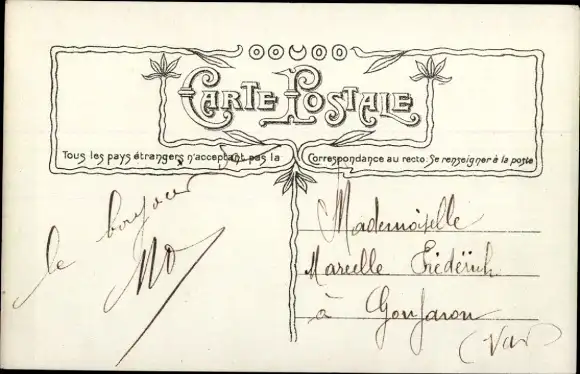 CARTE POSTALE
Tous les pays étrangers n'acceptant pas la Correspondance au recto. Se renseigner à la poste
le bonjour
Mademoiselle
Marcelle Frédérich
à Gonfaron
(Var)